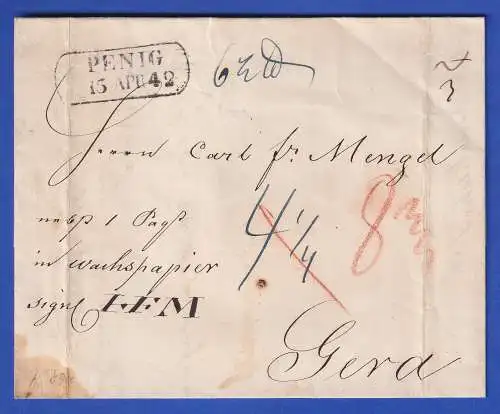 PENIG
15 APR 42
Herrn Carl fr. Mengel
nebst 1 Paqt
in Wachspapier
sign
4 1/4
8
Gera